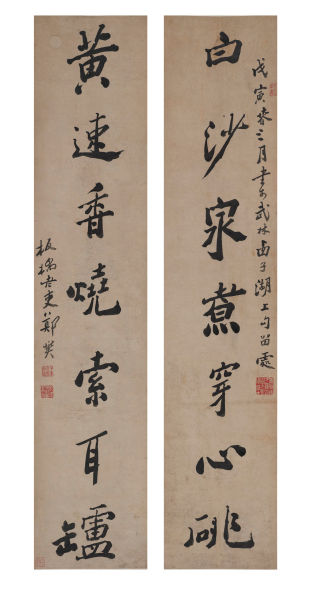 戊寅春三月書於武林西子湖上勾留處
白沙泉煮穿心銚
黃速香燒索耳罏
板橋老叟鄭燮